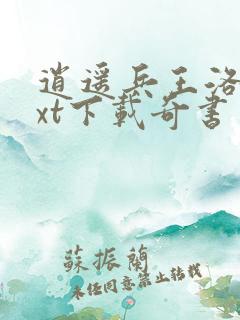 逍遥兵王洛
xt下载奇书
蘇振蘭
未经同意禁止转载